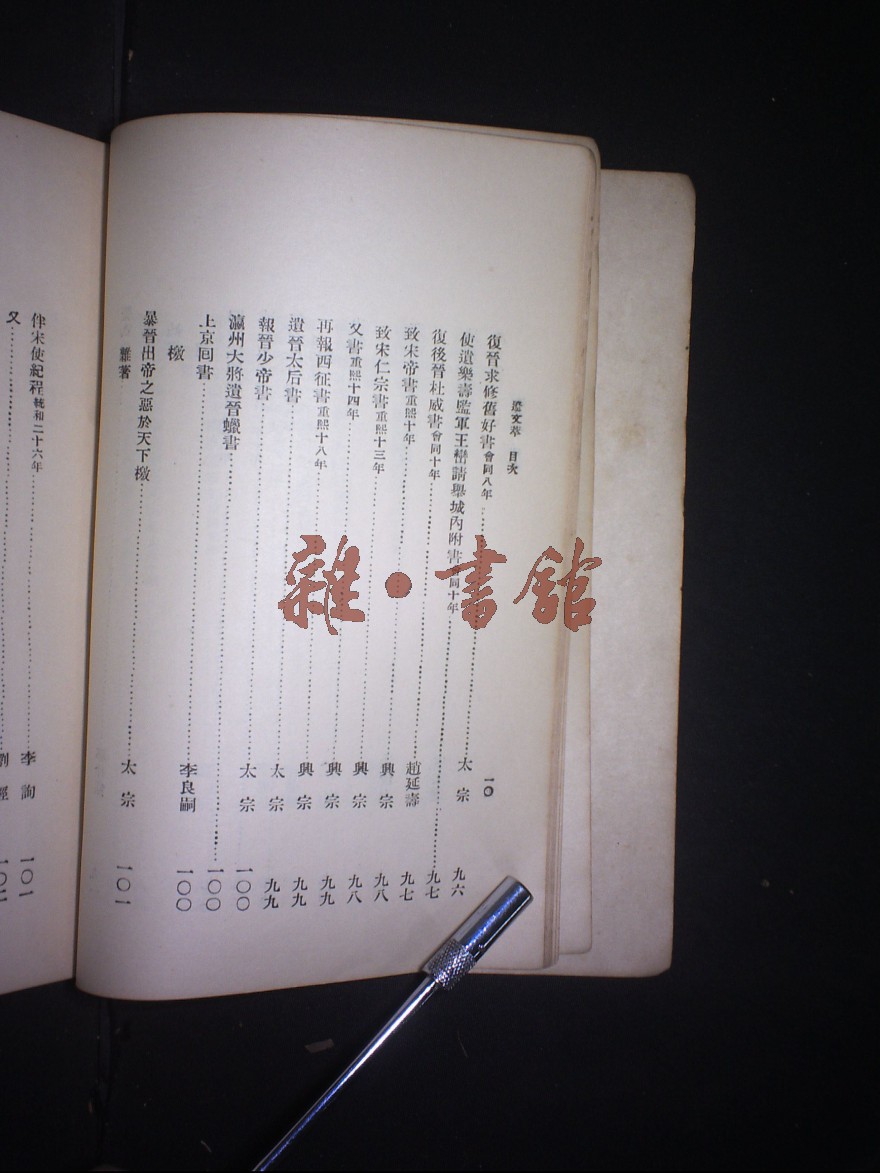 遼文萃 目次 一〇
復晉求修舊好書會同八年……太宗 九六
使遺樂壽監軍王巒請舉城內附書會同十年……九七
復後晉杜威書會同十年……趙延壽 九七
致宋帝書重熙十年……興宗 九八
致宋仁宗書重熙十三年……興宗 九八
又書重熙十四年……興宗 九九
再報西征書重熙十八年……興宗 九九
遺晉太后書……太宗 九九
報晉少帝書……太宗 一〇〇
瀛州大將遺晉蠟書……一〇〇
上京回書……李良嗣 一〇〇
檄
暴晉出帝之惡於天下檄……太宗 一〇一
雜著
伴宋使紀程統和二十六年……李詢 一〇一
又……劉經 一〇二
雜·書館